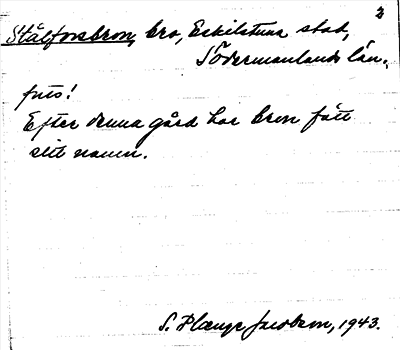 2
Stålforsbron, bro, Eskilstuna stad,
Södermanlands län.
futs!
Efter denna gård har bron fått
sitt namn.
S. Hænge Jacobsen, 1943.